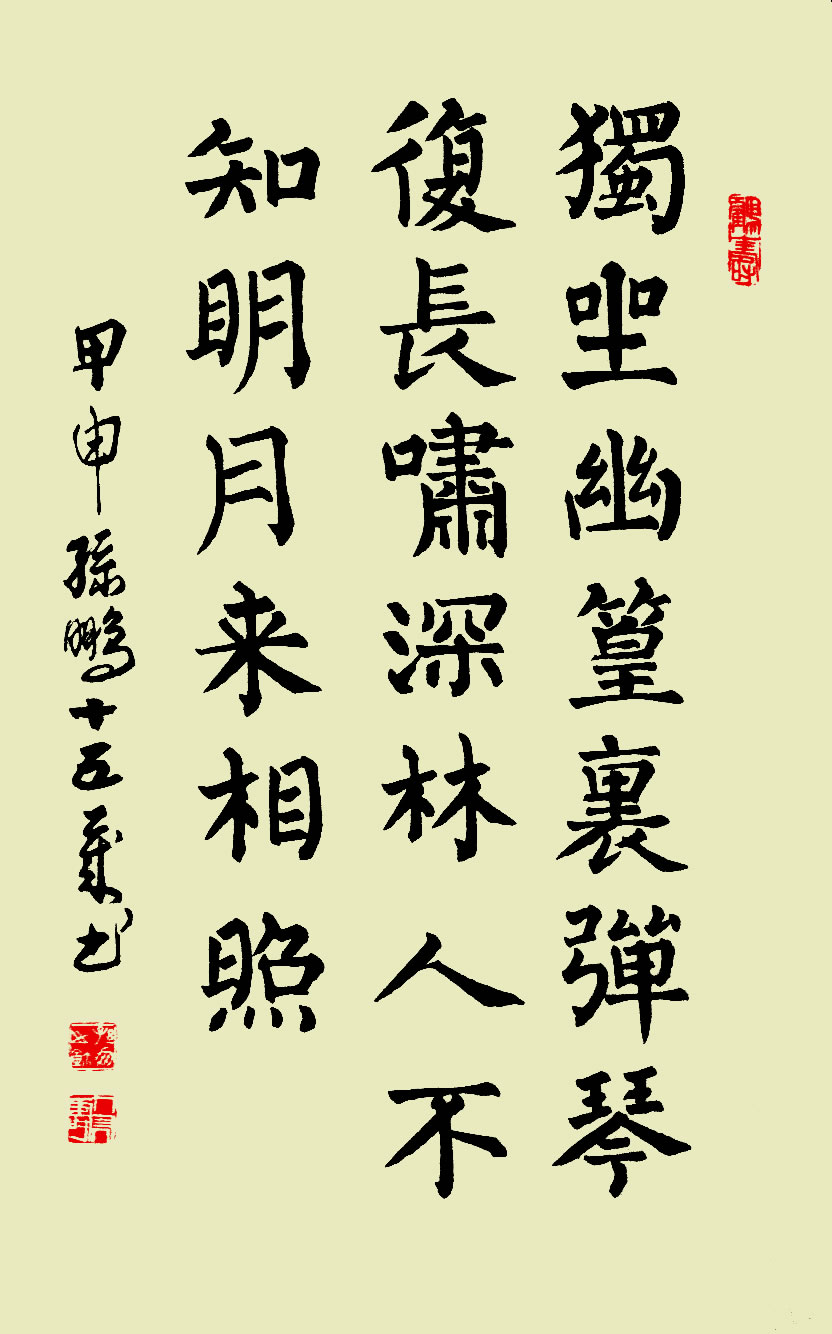 獨坐幽篁裏彈琴
復長嘯深林人不
知明月来相照
甲申孫鵬十五歲书